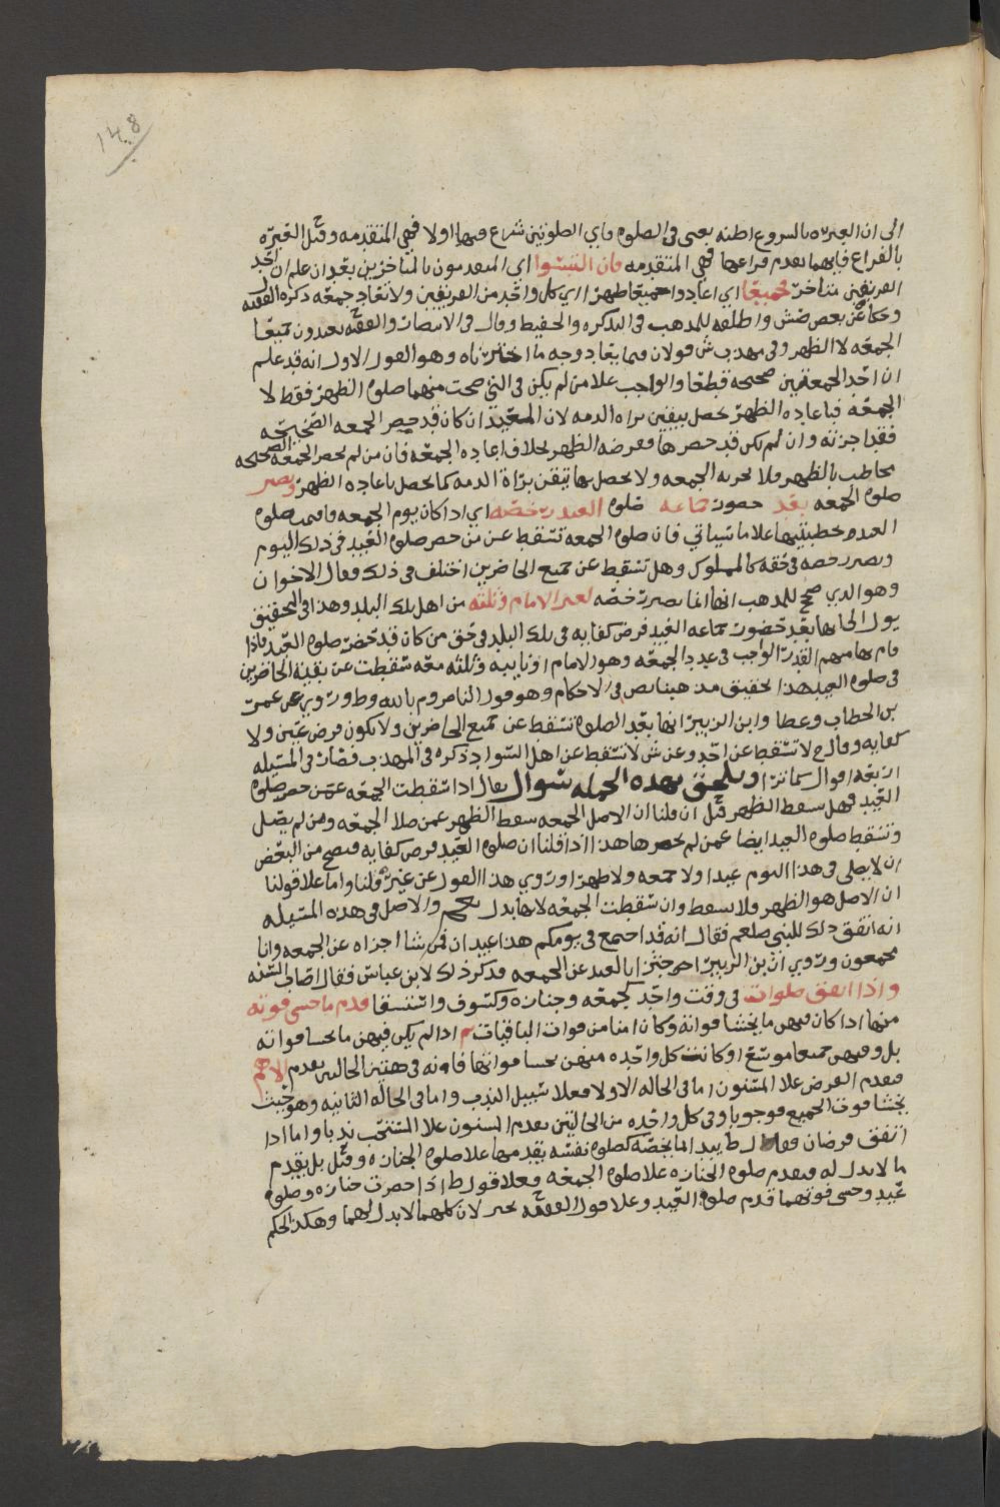 148
الى ان العبره بالشروع اظنه يعني في الصلوه فاي الصلوتين شرع فيها اولا فهي المتقدمه وقيل العبره
بالفراغ فايهما تقدم فراغها فهي المتقدمه فان التبسوا اي المتقدمون بالمتاخرين بعد ان علم ان احد
الفريقين متاخر فجميعا اي اعادوا جميعا ظهرا اي كل واحد من الفريقين ولا تعاد جمعه ذكره الفقيه
وحكاه عن بعض صش واطلقه للمذهب في التذكره والحفيظ وقال في الانتصار والفقيه يعيدون جميعا
الجمعه لا الظهر وفي مهذب ش قولان فيما يعاد وجه ما اخترناه وهو القول الاول انه قد علم
ان احد الجمعتين صحيحه قطعا والواجب علا من لم يكن في التي صحت منهما صلوه الظهر فقط لا
الجمعه فباعاده الظهر تحصل بيقين براه الذمه لان المعيد ان كان قد حضر الجمعه الصحيحه
فقد اجزته وان لم يكن قد حضرها ففرضه الظهر بخلاف اعاده الجمعه فان من لم يحضر الجمعه الصحيحه
مخاطب بالظهر ولا تجزيه الجمعه ولا يحصل بها تيقن براه الذمه كما يحصل باعاده الظهر وتصير
صلوه الجمعه بعد حضور جماعه صلوه العيد رخصه اي اذا كان يوم الجمعه واقيمت صلوه
العيد بخطبتيها علا ما سياتي فان صلوه الجمعه تسقط عن من حضر صلوه العيد في ذلك اليوم
وتصير رخصه في حقه كالمملوك وهل تسقط عن جميع الحاضرين اختلف في ذلك فقال الاخوان
وهو الذي صحح للمذهب انها انما تصير رخصه لغير الامام وثلثه من اهل تلك البلد وهذا في التحقيق
يول الى انها بعد حضور جماعه العيد فرض كفايه في تلك البلد في حق من كان قد حضر صلوه العيد فاذا
قام بها منهم القدر الواجب في عدد الجمعه وهو الامام او نايبه وثلثه معه سقطت عن بقيه الحاضرين
في صلوه العيد هذا تحقيق مذهبنا نص في الاحكام وهو قول الناصر و م بالله وط وروي عن عمر
بن الخطاب وعطا وابن الزبير انها بعد الصلوه تسقط عن جميع الحاضرين ولا تكون فرض عين ولا
كفايه وقال ح لا تسقط عن احد وعن ش لا تسقط عن اهل السواد ذكره في المهذب فصار في المسيله
اربعه اقوال كما ترا ويلحق بهذه الجمله سوال يقال اذا سقطت الجمعه عمن حضر صلوه
العيد فهل يسقط الظهر قيل ان قلنا ان الاصل الجمعه سقط الظهر عمن صلا الجمعه ومن لم يصل
وتسقط صلوه العيد ايضا عمن لم يحضرها هذا اذا قلنا ان صلوه العيد فرض كفايه فيصح من البعض
ان لا يصلي في هذا اليوم عيدا ولا جمعه ولا ظهرا وروي هذا القول عن قلنا واما علا قولنا
ان الاصل هو الظهر فلا يسقط وان سقطت الجمعه لانها بدل والاصل في هذه المسيله
انه اتفق ذلك للنبي صلعم فقال انه قد اجتمع في يومكم هذا عيدان فمن شا اجزاه عن الجمعه وانا
مجمعون وروي ان بن الزبير اجتزا بالعيد عن الجمعه فذكر ذلك لابن عباس فقال اصاب السنه
واذا اتفق صلوات في وقت واحد كجمعه وجنازه وكسوف واستسقا قدم ما خشي فوته
منها اذا كان فيهن ما يخشا فواته وكان امنا من فوات الباقيات ثم اذا لم يكن فيهن ما يخشا فواته
بل وفيهن جميعا موسع او كانت كل واحده منهن يخشا فواتها فانه في هتين الحالين يقدم الاهم
فيقدم الفرض علا المسنون اما في الحاله الاولا فعلا سبيل الندب واما في الحاله الثانيه وهو حيث
يخشا فوت الجميع فوجوبا وفي كل واحده من الحالتين يقدم المسنون علا المستحب ندبا واما اذا
اتفق فرضان فقال ط يبدا بما يخصه كصلوه نفسه يقدمها علا صلوه الجنازه وقيل بل يقدم
ما لا بدل له فيقدم صلوه الجنازه علا صلوه الجمعه فعلا قول ط اذا حضرت جنازه وصلوه
عيد وخشي فوتهما قدم صلوه العيد وعلا قول الفقيه يخير لان كلهما لا بدل لهما وهكذا الحكم